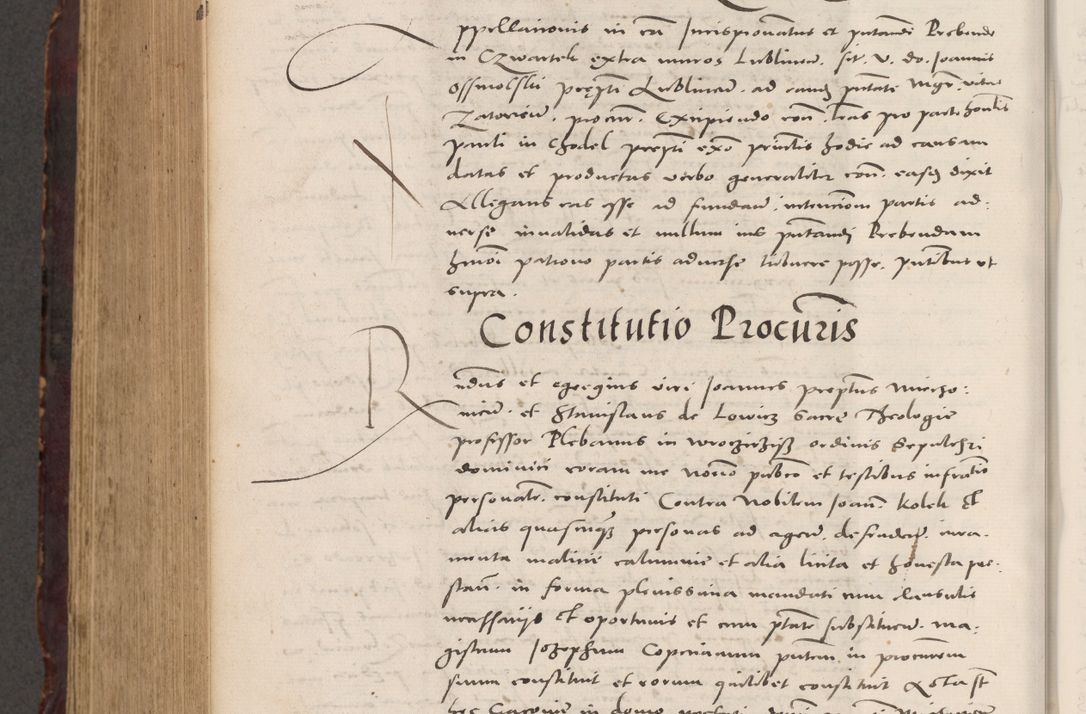 ppellationis in ca Jurispronatus et putandi Prebende
in Czwartek extra muros Lublineñ. sit. v. do. Joannis
Ossmolskii prepti Lublineñ. ad eandem
Zatorien. procur. Excipiendo con. lras pro parte honblis
pauli in Chodel prepti hodie ad causam
datas et productas verbo generaliter con. easdem dixit
Allegans eas esse ad fundan. intencionem partis ad:
uerse inualidas et nullum ius putandi Prebendam
hmoi patrono partis aduerse tribuere posse. ut
supra.
Constitutio Procuris
Rndus et egregius viri Joannes preptus Miecho:
uien. et Stanislaus de Lowicz Sacre Theologie
professor Plebanus in ordinis Sepulchri
dominici coram me notorio pubco et testibus infratis
personalr. constituti Contra Nobilem Joann. Kolek Et
alias quascumque personas ad agen. defenden. iura-
menta malicie calumnie et alia licita et honesta pre-
stan. in forma plenissima mandati cum clausulis
necessarijs Et oportunis et cum ptate substituen. ma-
gistrum Josephum in procurem
suum constituit et eorum quilibet constituit Acta st
hec Cracouie in domo